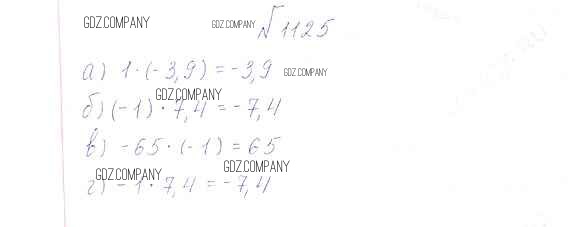 GDZ.COMPANY GDZ.COMPANY № 1125
а) 1·(-3,9) = -3,9 GDZ.COMPANY
GDZ.COMPANY
б) (-1)·7,4 = -7,4
в) -65·(-1) = 65
GDZ.COMPANY GDZ.COMPANY
г) -1·7,4 = -7,4